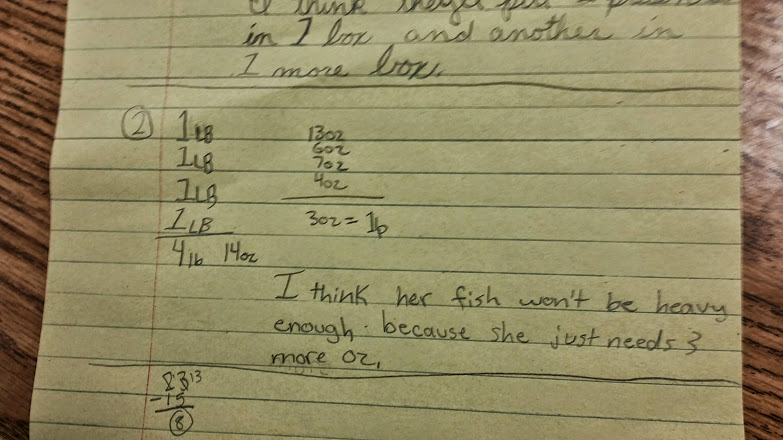 I think
in 1 box and another in
1 more box.
② 1LB 13oz
1LB 6oz
1LB 7oz
1LB 4oz
1LB 3oz = 1lb
4lb 14oz
I think her fish won't be heavy
enough. because she just needs 3
more oz.
23 13
- 15
8